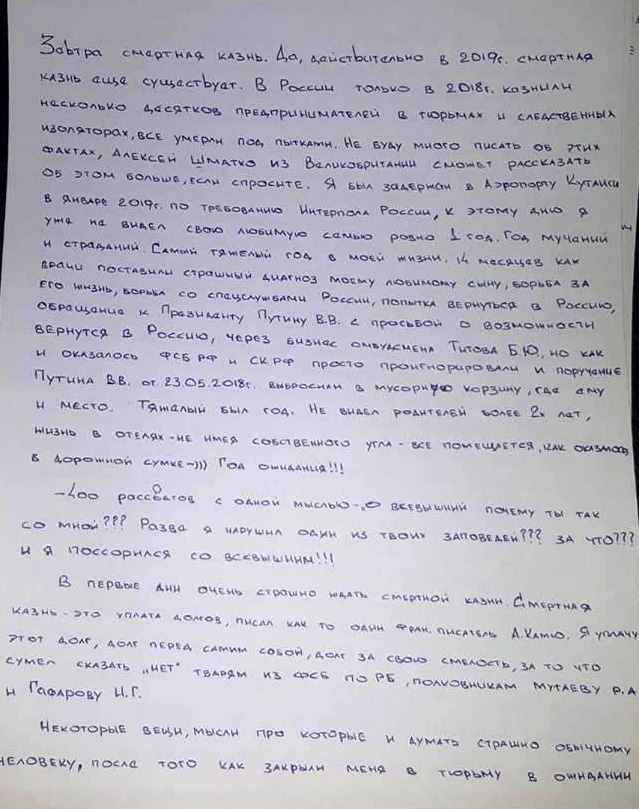 Завтра смертная казнь. Да, действительно в 2019г. смертная
казнь еще существует. В России только в 2018г. казнили
несколько десятков предпринимателей в тюрьмах и следственных
изоляторах, все умерли под пытками. Не буду много писать об этих
фактах, Алексей Шматко из Великобритании сможет рассказать
об этом больше, если спросите. Я был задержан в Аэропорту Кутаиси
в январе 2019г. по требованию Интерпола России, к этому дню я
уже не видел свою любимую семью ровно 1 год. Год мучений
и страданий. Самый тяжелый год в моей жизни. 14 месяцев как
врачи поставили страшный диагноз моему любимому сыну, борьба за
его жизнь, борьба со спецслужбами России, попытка вернуться в Россию,
обращение к Президенту Путину В.В. с просьбой о возможности
вернутся в Россию, через бизнес омбудсмена Титова Б.Ю, но как
и оказалось ФСБ РФ и СК РФ просто проигнорировали и поручение
Путина В.В. от 23.05.2018г. выбросили в мусорную корзину, где ему
и место. Тяжелый был год. Не видел родителей более 2х лет,
жизнь в отелях - не имея собственного угла - все помещается, как оказалось,
в дорожной сумке-))) Год ожидания!!!
-400 рассветов с одной мыслью-„О всевышний почему ты так
со мной??? Разве я нарушил один из твоих заповедей??? За что???
и я поссорился со всевышним!!!
В первые дни очень страшно ждать смертной казни. Смертная
казнь - это уплата долгов, писал как то один фран. писатель А.Камю. Я уплачу
этот долг, долг перед самим собой, долг за свою смелость, за то что
сумел сказать „нет" тварям из ФСБ по РБ, полковникам Мутаеву Р.А
и Гафарову И.Г.
Некоторые вещи, мысли про которые и думать страшно обычному
человеку, после того как закрыли меня в тюрьму в ожидании